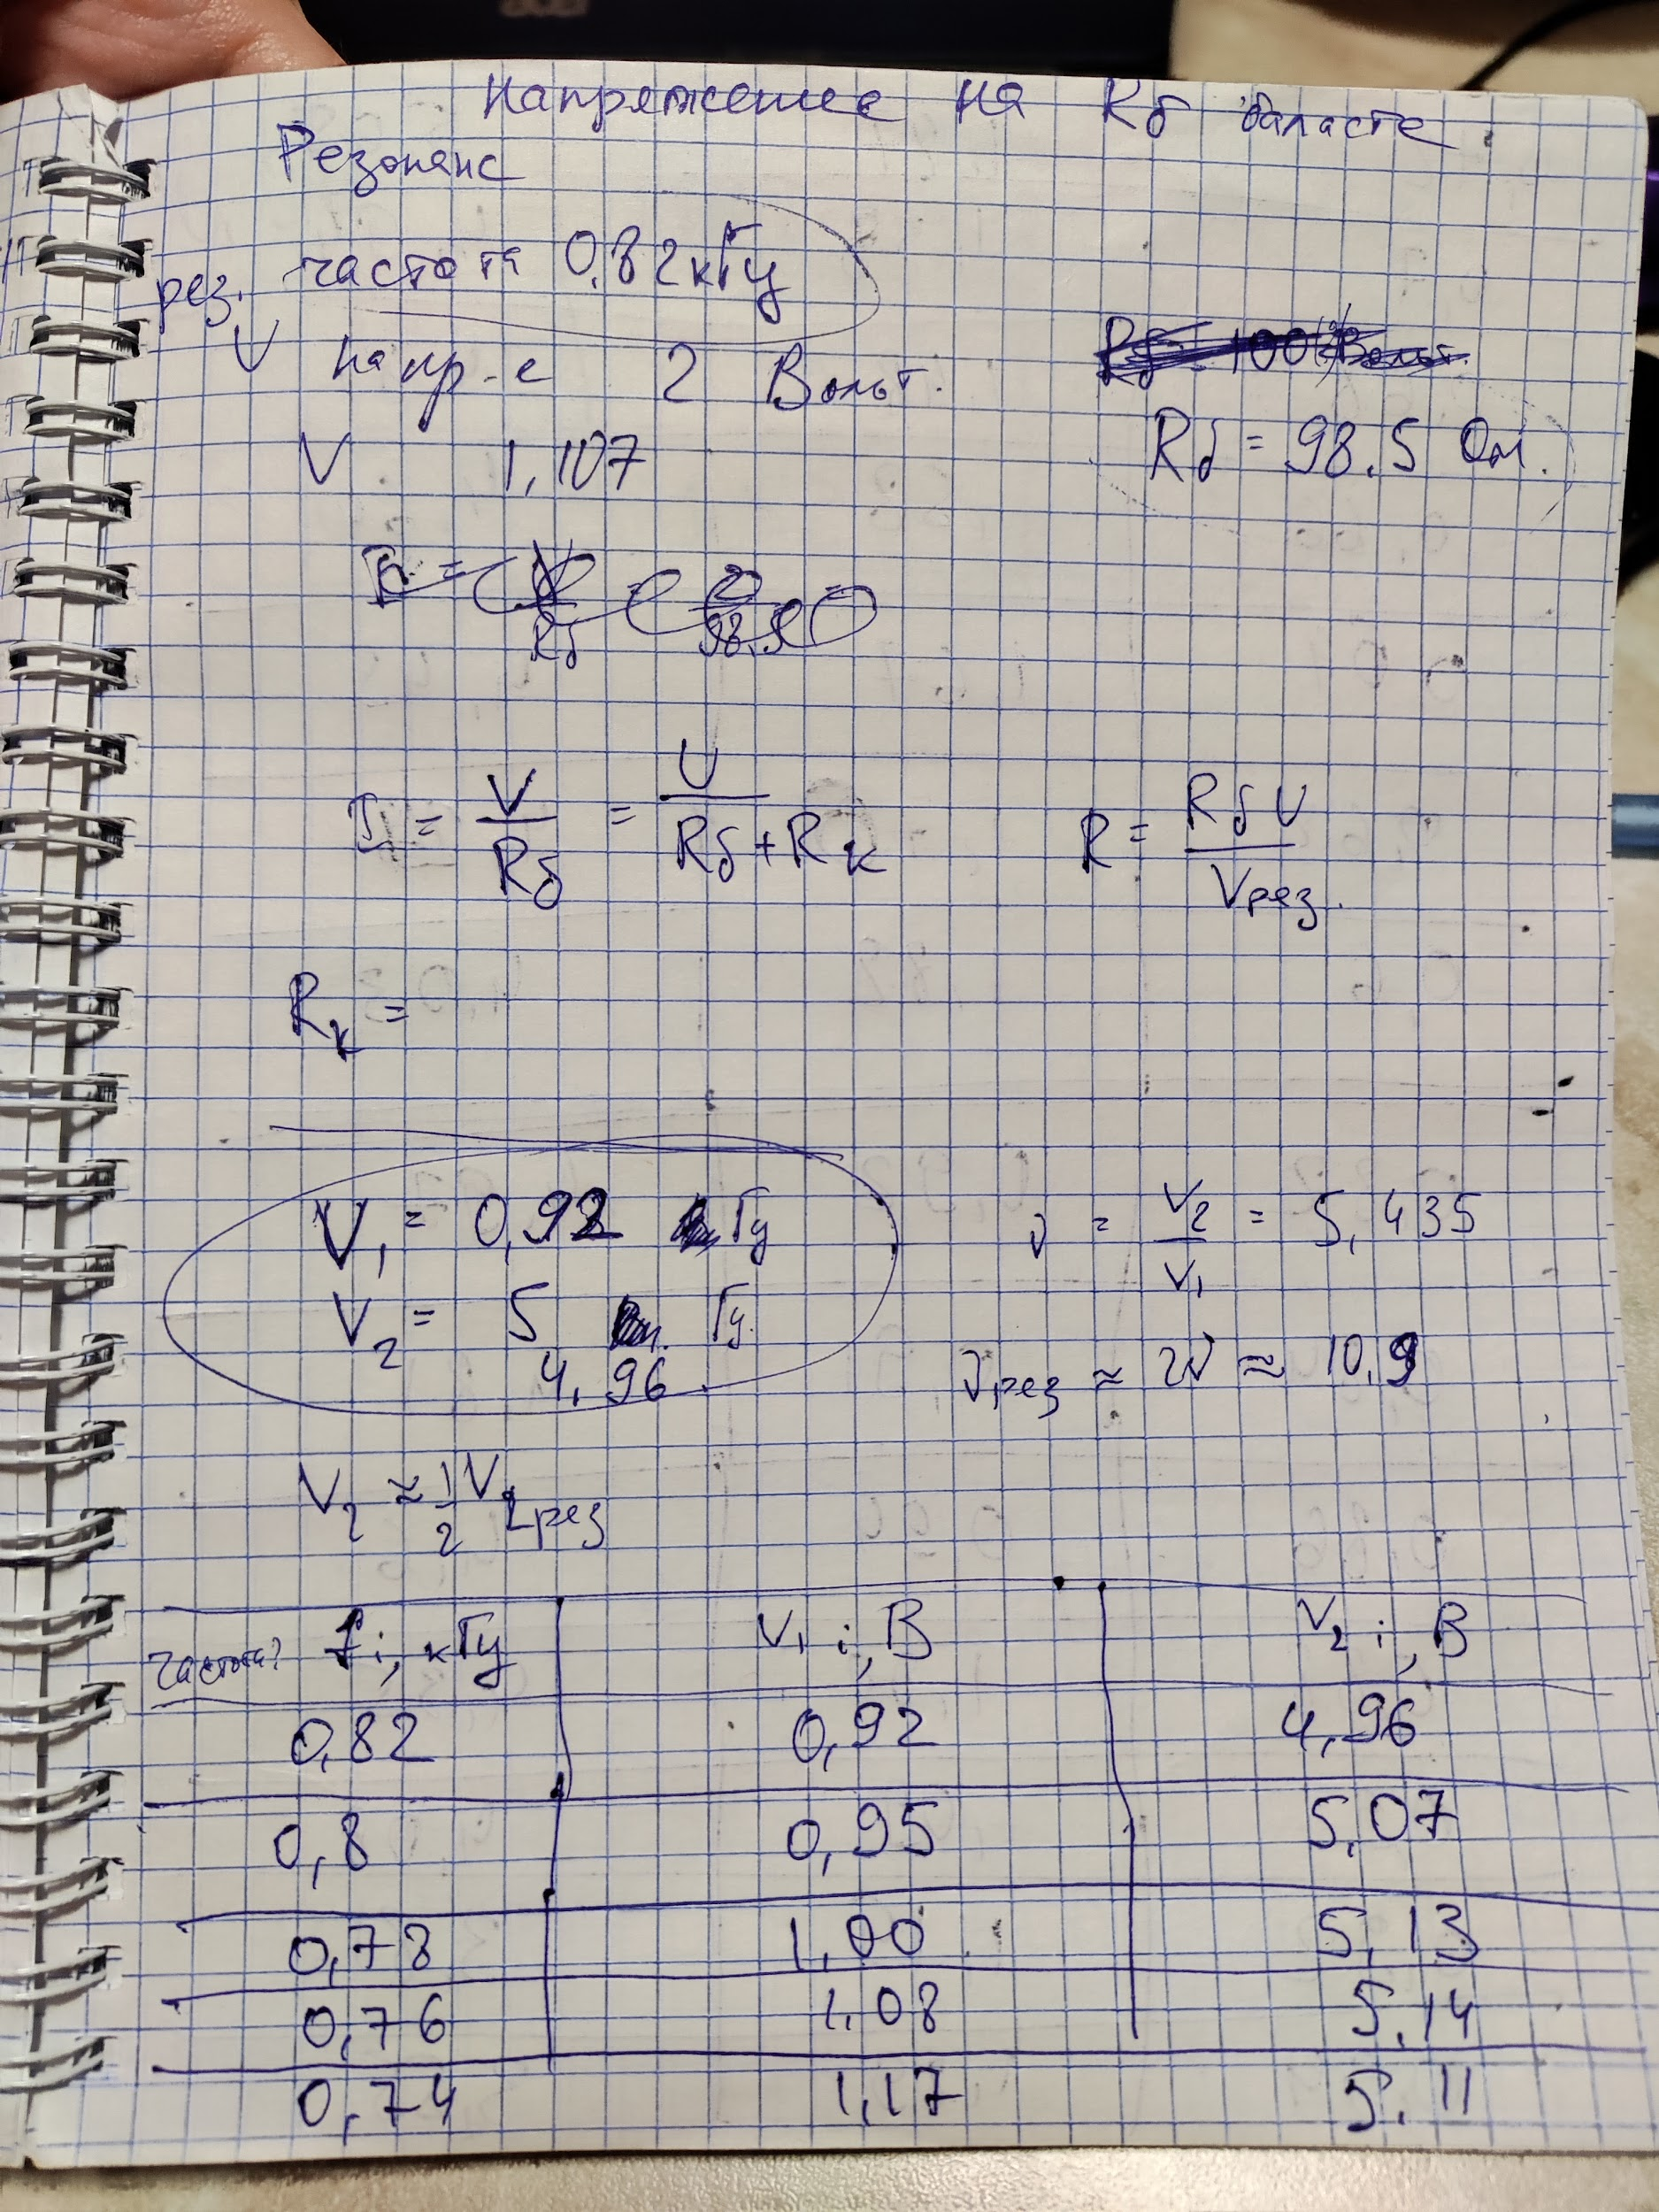 Напряжение на Rб баласте
Резонанс
рез. частота 0,82 кГц
U напр-е 2 Вольт.
Rб = 98.5 Ом.
V 1,107
I = V/Rб = U/(Rб+Rк)
R = RбU/Vрез.
Rк =
V1 = 0,92 Гц
V2 = 5 Гц.
4,96
ν = V2/V1 = 5,435
νрез ≈ 2ν ≈ 10,9
V2 ≈ 1/2 V2рез
частота? fi, кГц V1 i, В V2 i, В
0,82 0,92 4,96
0,8 0,95 5,07
0,78 1,00 5,13
0,76 1,08 5,14
0,74 1,17 5.11